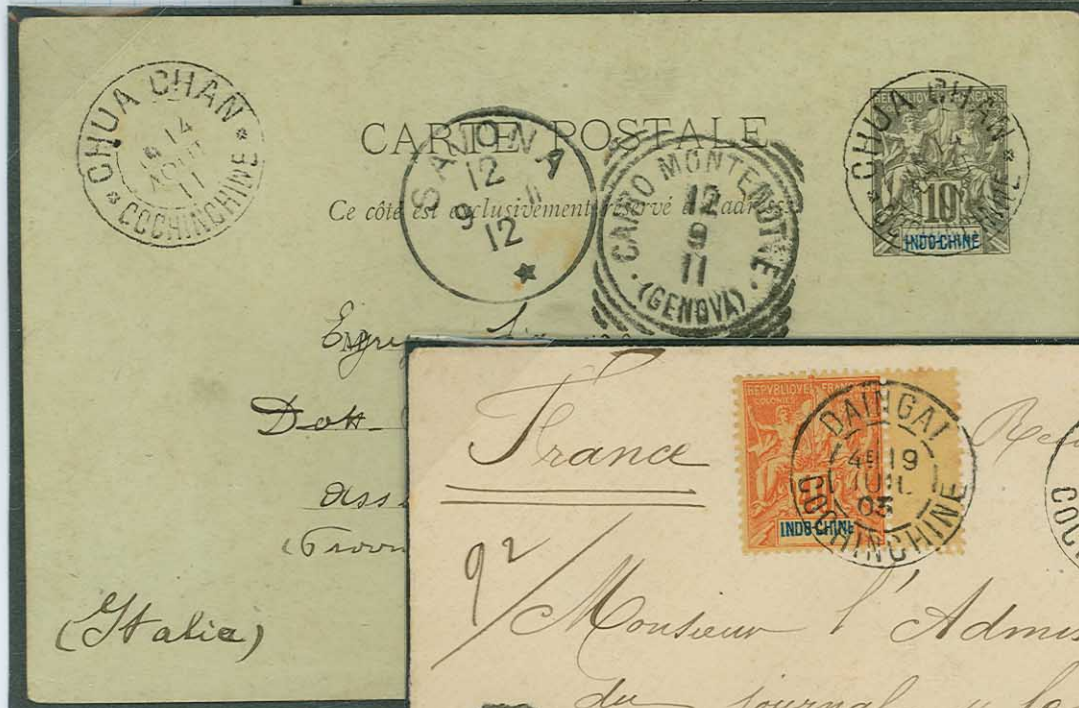 CHUA CHAN
14
AOUT
11
COCHINCHINE
CARTE POSTALE
Ce côté est exclusivement réservé à l'adresse
SAVONA
12
9 11
12
CAIRO MONTENOTTE
12
9
11
(GENOVA)
REPUBLIQUE FRANÇAISE
CHUA CHAN
10
INDO-CHINE
COCHINCHINE
Dott
(Italia)
France
REPVBLIQVE FRANÇAISE
COLONIES
INDO-CHINE
DAINGAI
4E 19
JUIL
03
COCHINCHINE
COC
92/
Monsieur l'Admis
du journal "la